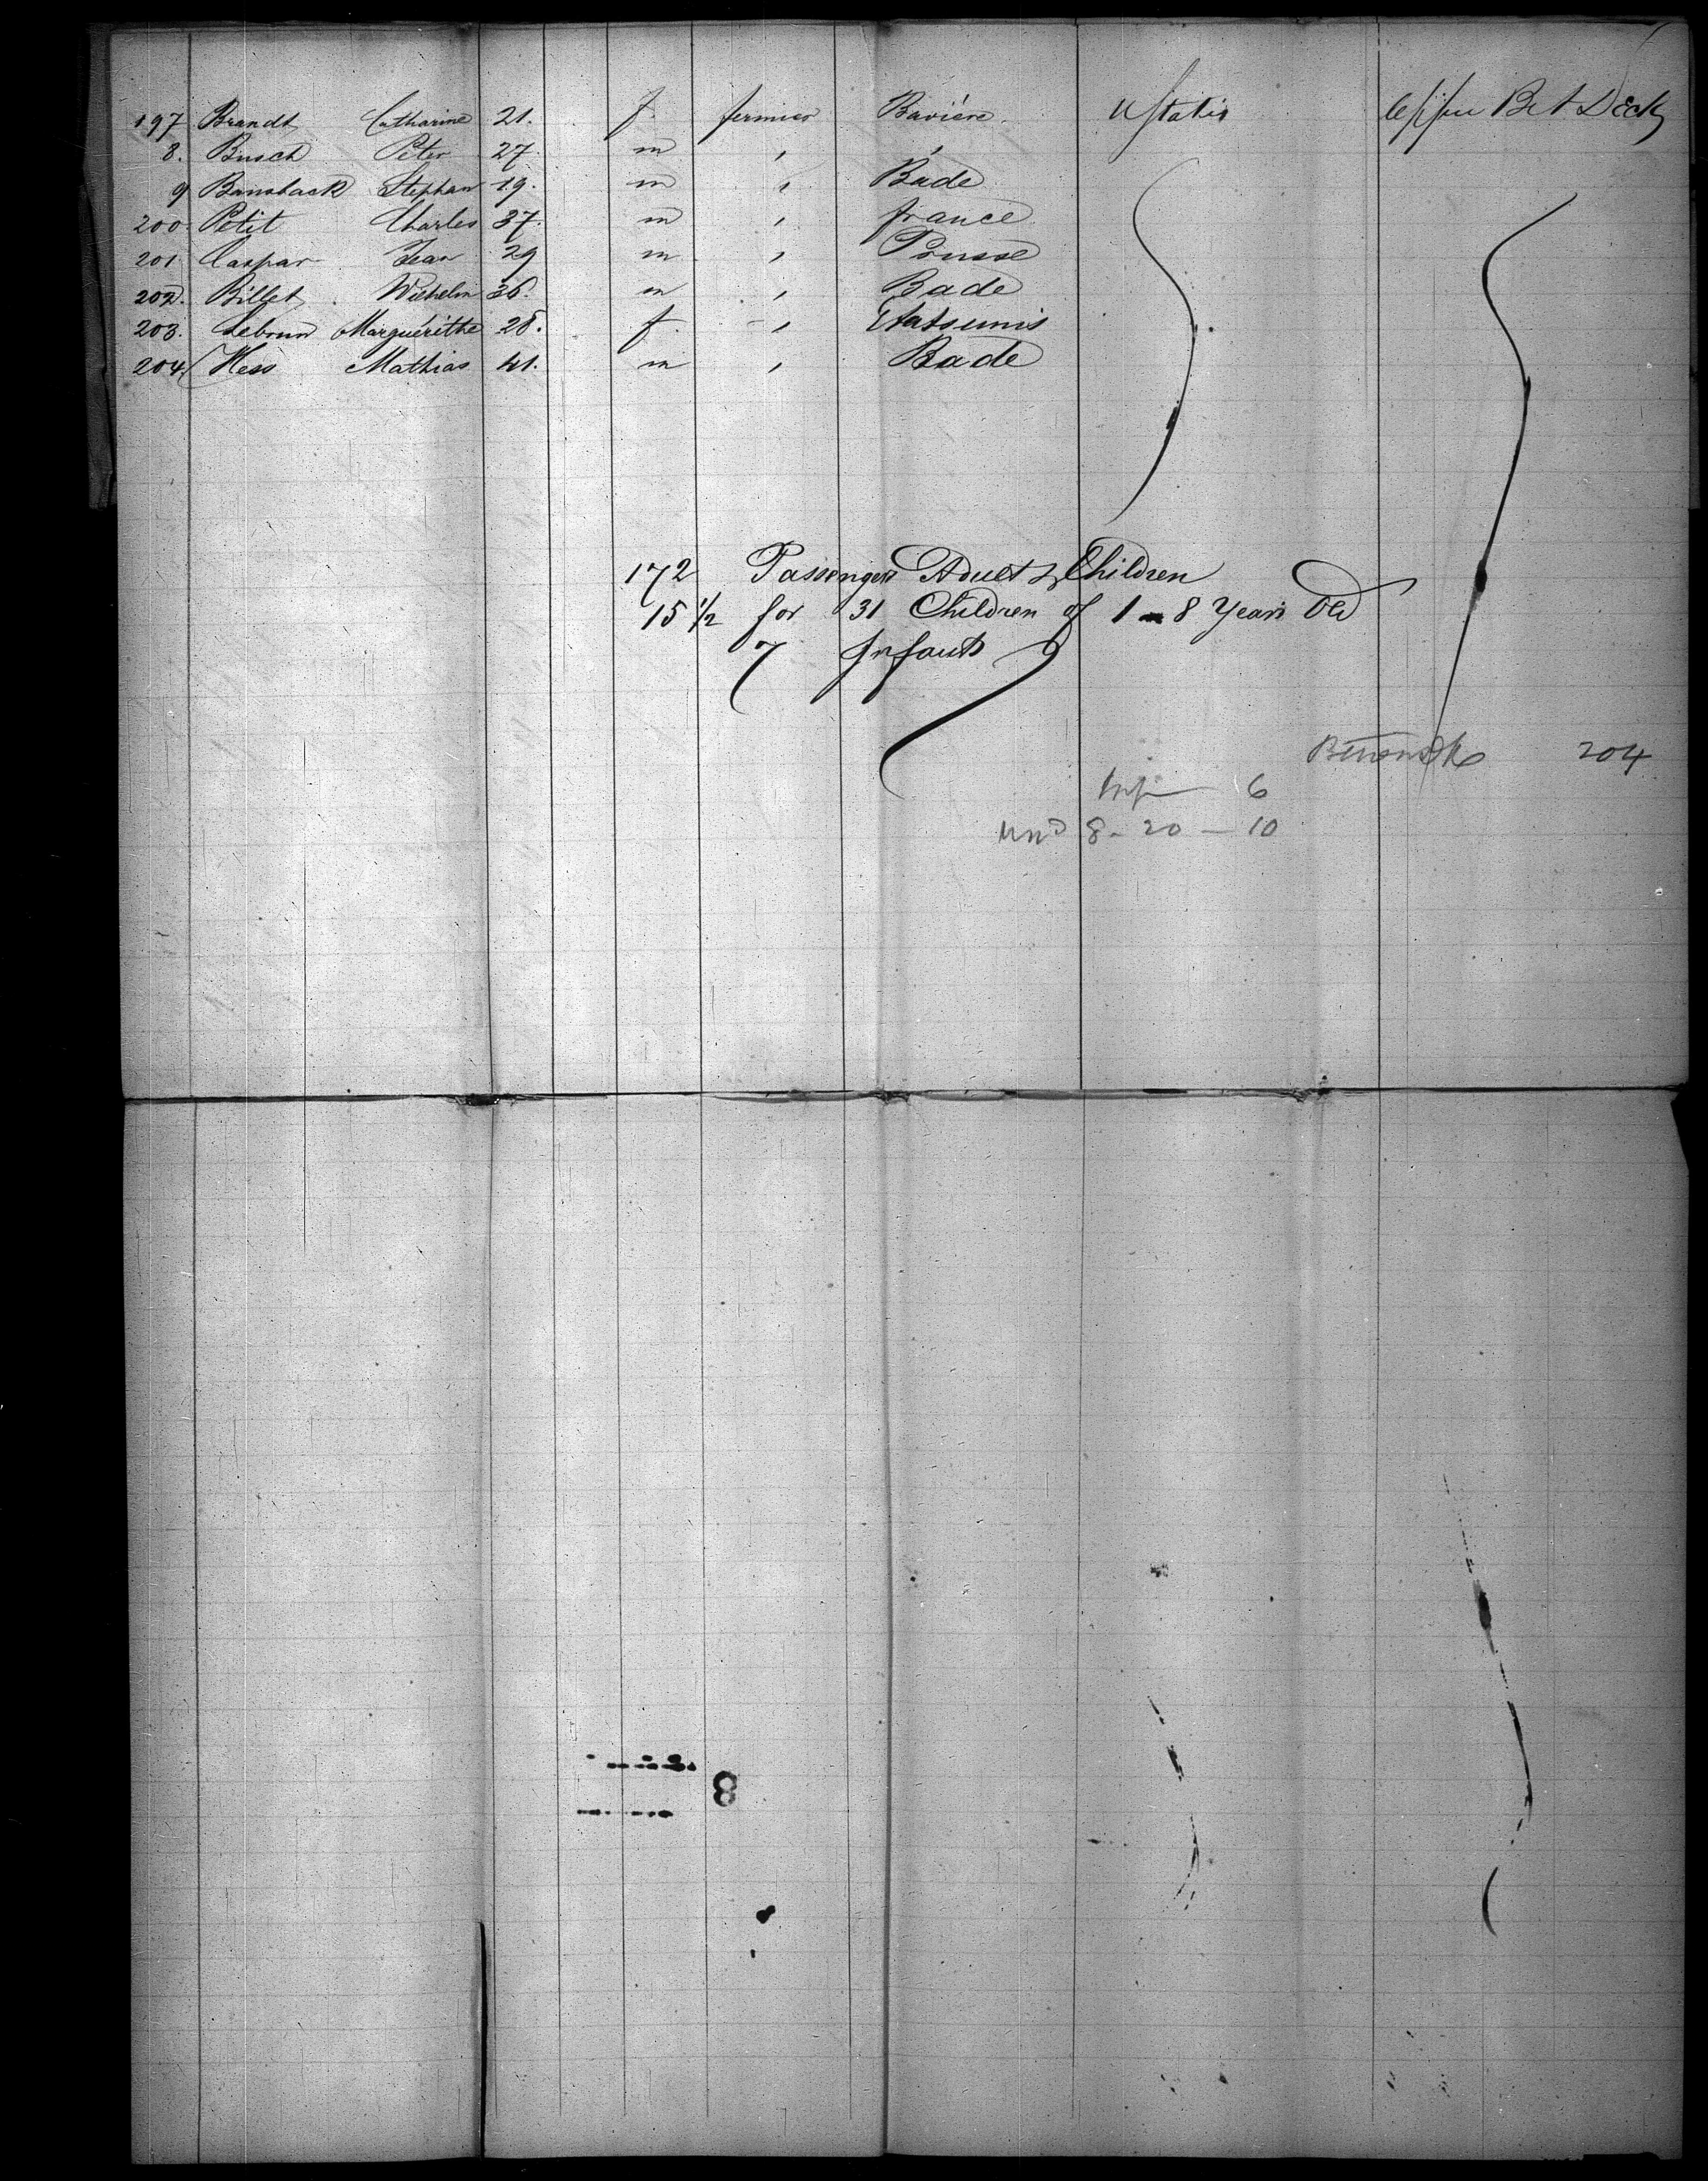 197 Brandt Catharine 21. f. fermier Baviére. U States Upper Bet Deck
8. Busch Peter 27 m " "
9 Bansback Stephan 19. m " Bade
200 Petit Charles 37. m " france
201 Caspar Jean 29 m " Prusse
202. Billet Wilhelm 36. m " Bade
203. Lebrun Marguérithe 28. f. " Etats unis
204 Hess Mathias 41. m " Bade
172 Passengers Adult & Children
15 1/2 for 31 Children of 1 - 8 Years Old
7 Infants
204
Inf 6
8 - 20 - 10
8